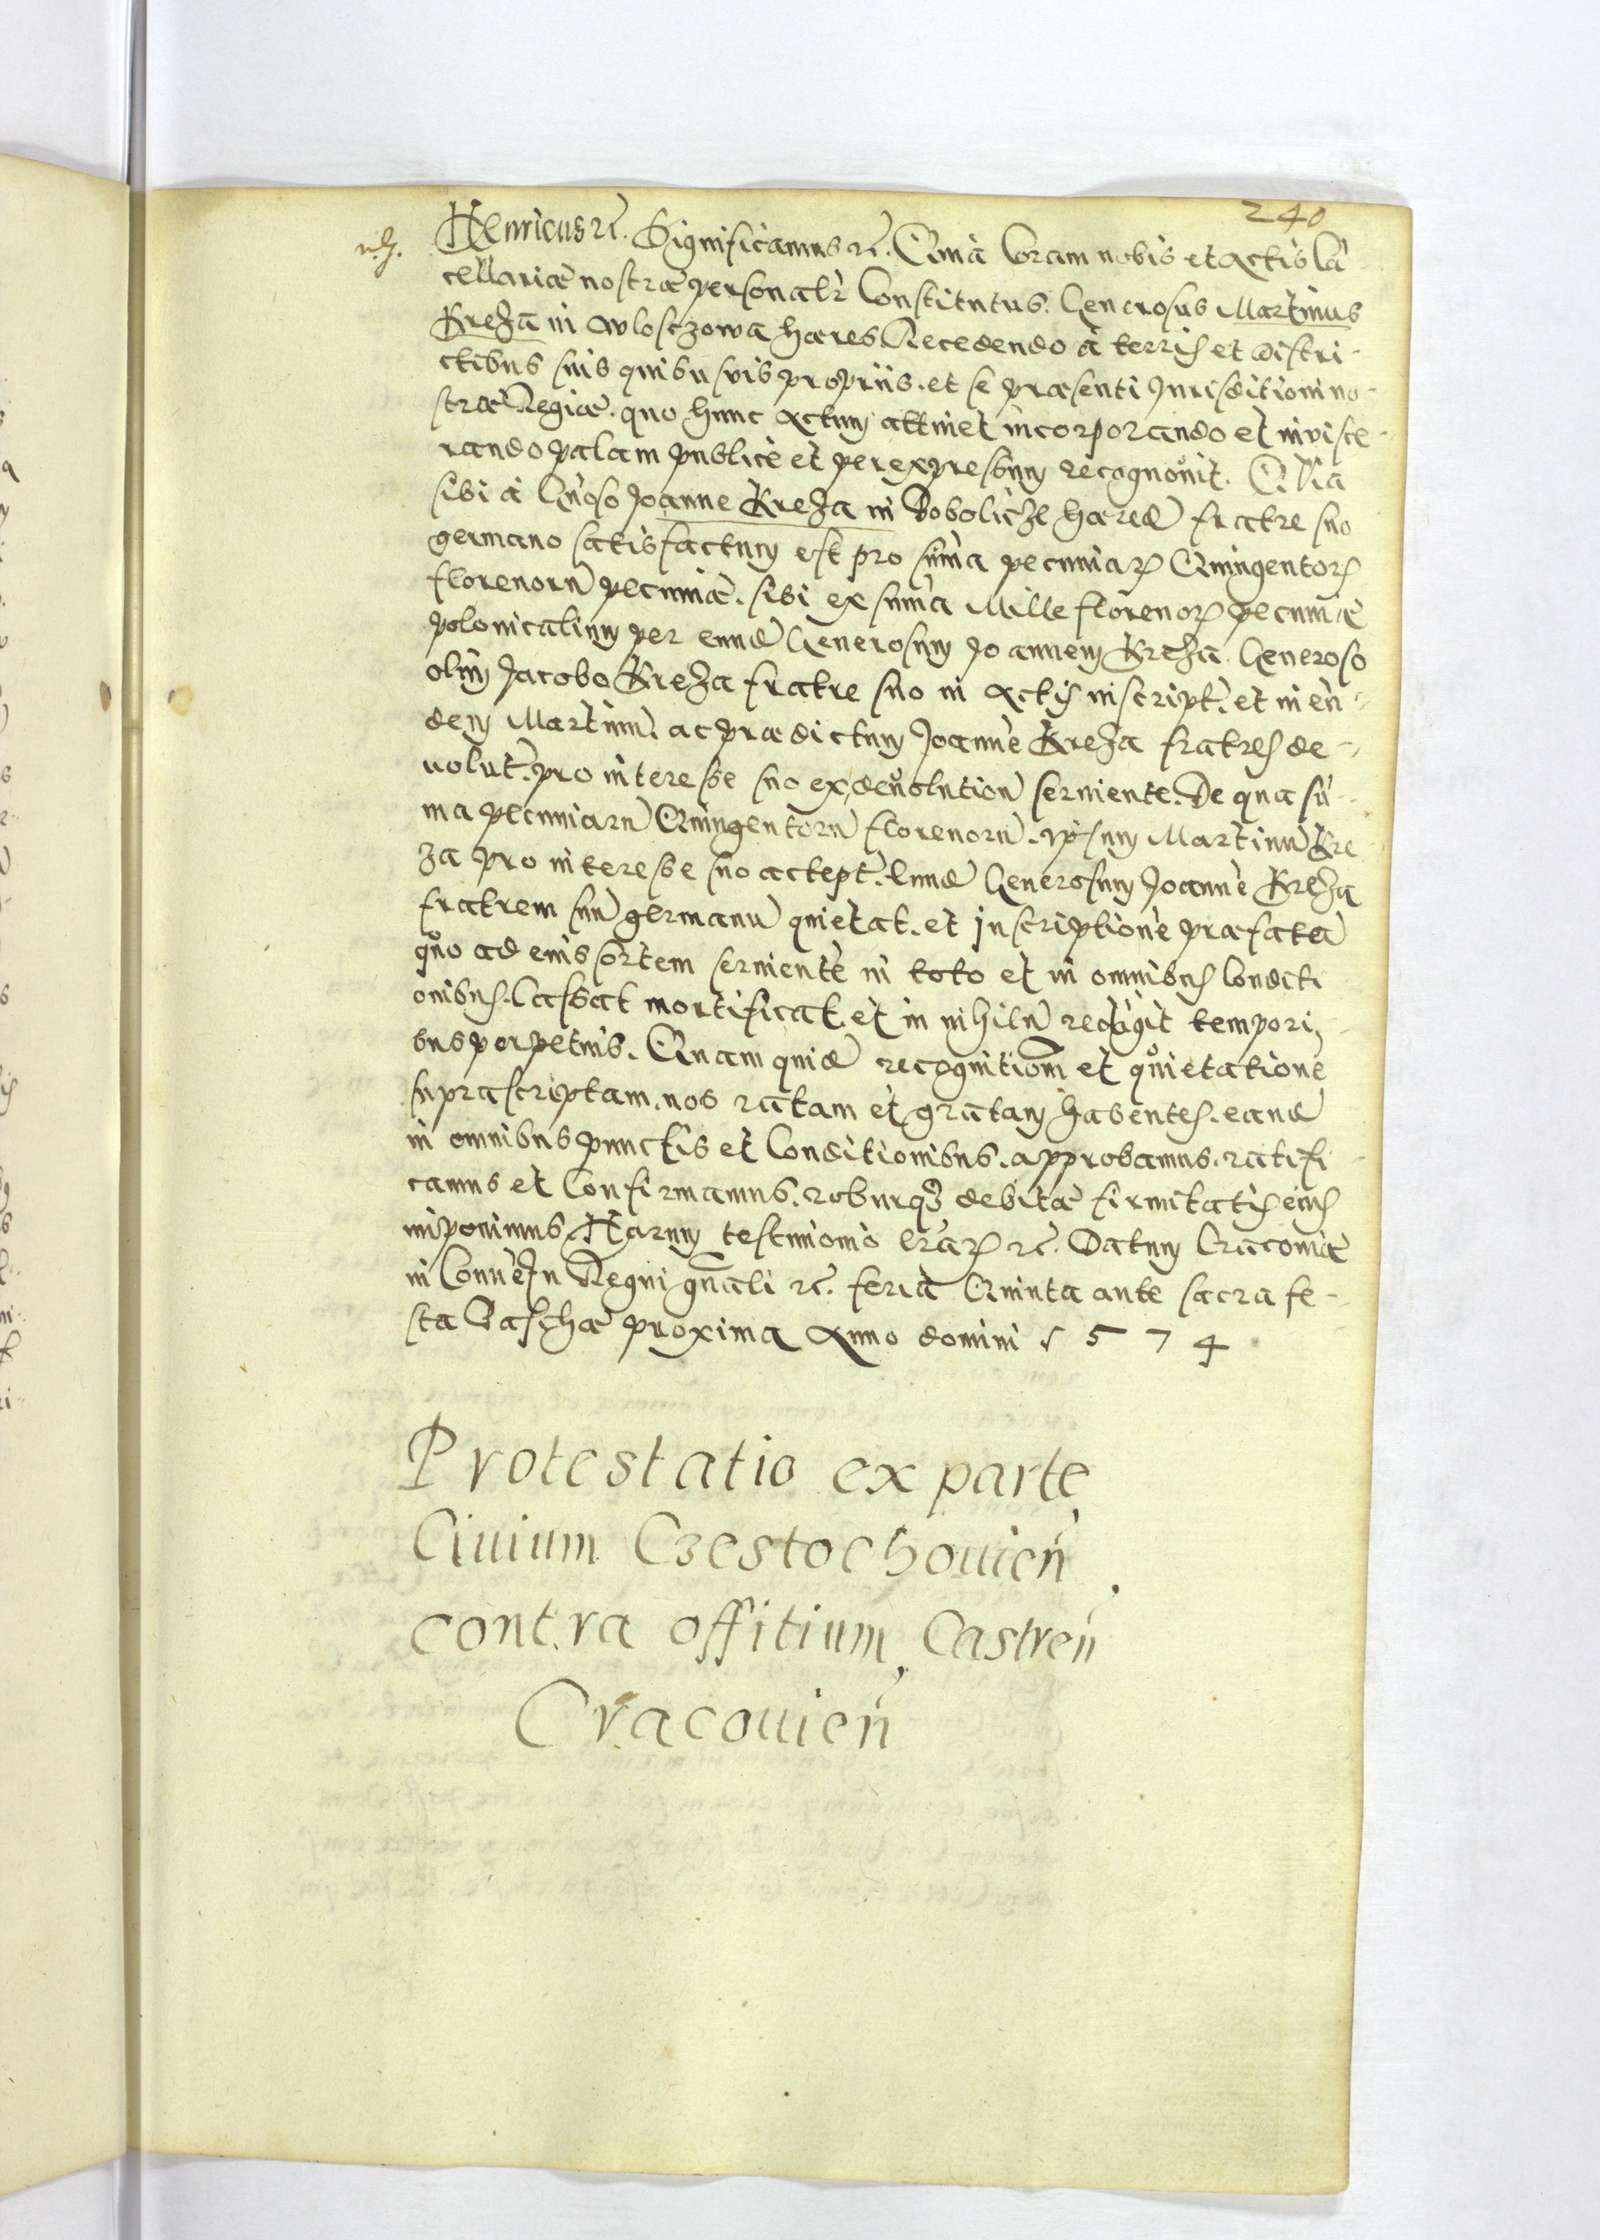 240
Henricus etc. Significamus etc. Quia Coram nobis et Actis Cā
cellariæ nostræ personalr̃ Constitutus. Generosus Martinus
Kreza in Wlosczowa hæres Recedendo à terris et distri-
ctibus suis quibusvis propriis. et se præsenti Jurisditioni no-
stræ Regiæ. quo hunc Actum attinet incorporando et invisce-
rando palam publice et per expressum recognovit. Quia
sibi à Gñoso Joanne Kreza in Bobolicze hæred fratre suo
germano satisfactum est pro sum̃a pecuniar̃ Quingentor̃
florenoru pecuniæ. sibi ex sum̃a Mille florenor̃ pecuniæ
polonicalium per eund Generosum Joannem Kreza. Generoso
olim Jacobo Kreza fratre suo in Actis inscript. et in eun
dem Martinu. ac prædictum Joanne Kreza fratres de-
volut. pro interesse suo ex devolution serviente. De qua sū-
ma pecuniaru Quingentoru florenoru. ipsum Martinu Kre
za pro interesse suo accept. Eund Generosum Joanne Kreza
fratrem suu germanu quietat. et inscriptione præfata
quo ad eius sortem serviente in toto et in omnibus Conditi
onibus. Cassat mortificat. et in nihilu redigit tempori
bus perpetuis. Quam quid recognitionem et quietatione
suprascriptam. nos ratam et gratam habentes. eand
in omnibus punctis et Conditionibus. approbamus. ratifi
camus et Confirmamus. roburq debitæ firmitatis eius
imponimus. Harum testimonio lrar̃ etc. Datum Cracoviæ
in Conven Regni gñali etc. feria Quinta ante sacra fe-
sta Paschæ proxima Anno domini 1574
Protestatio ex parte
Ciuium Czestochouien
contra offitium Castren
Cracouien